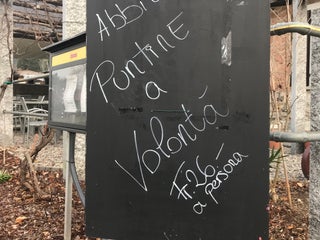 Abbi
Puntine
a
Volontà
Fr. 26.-
a persona